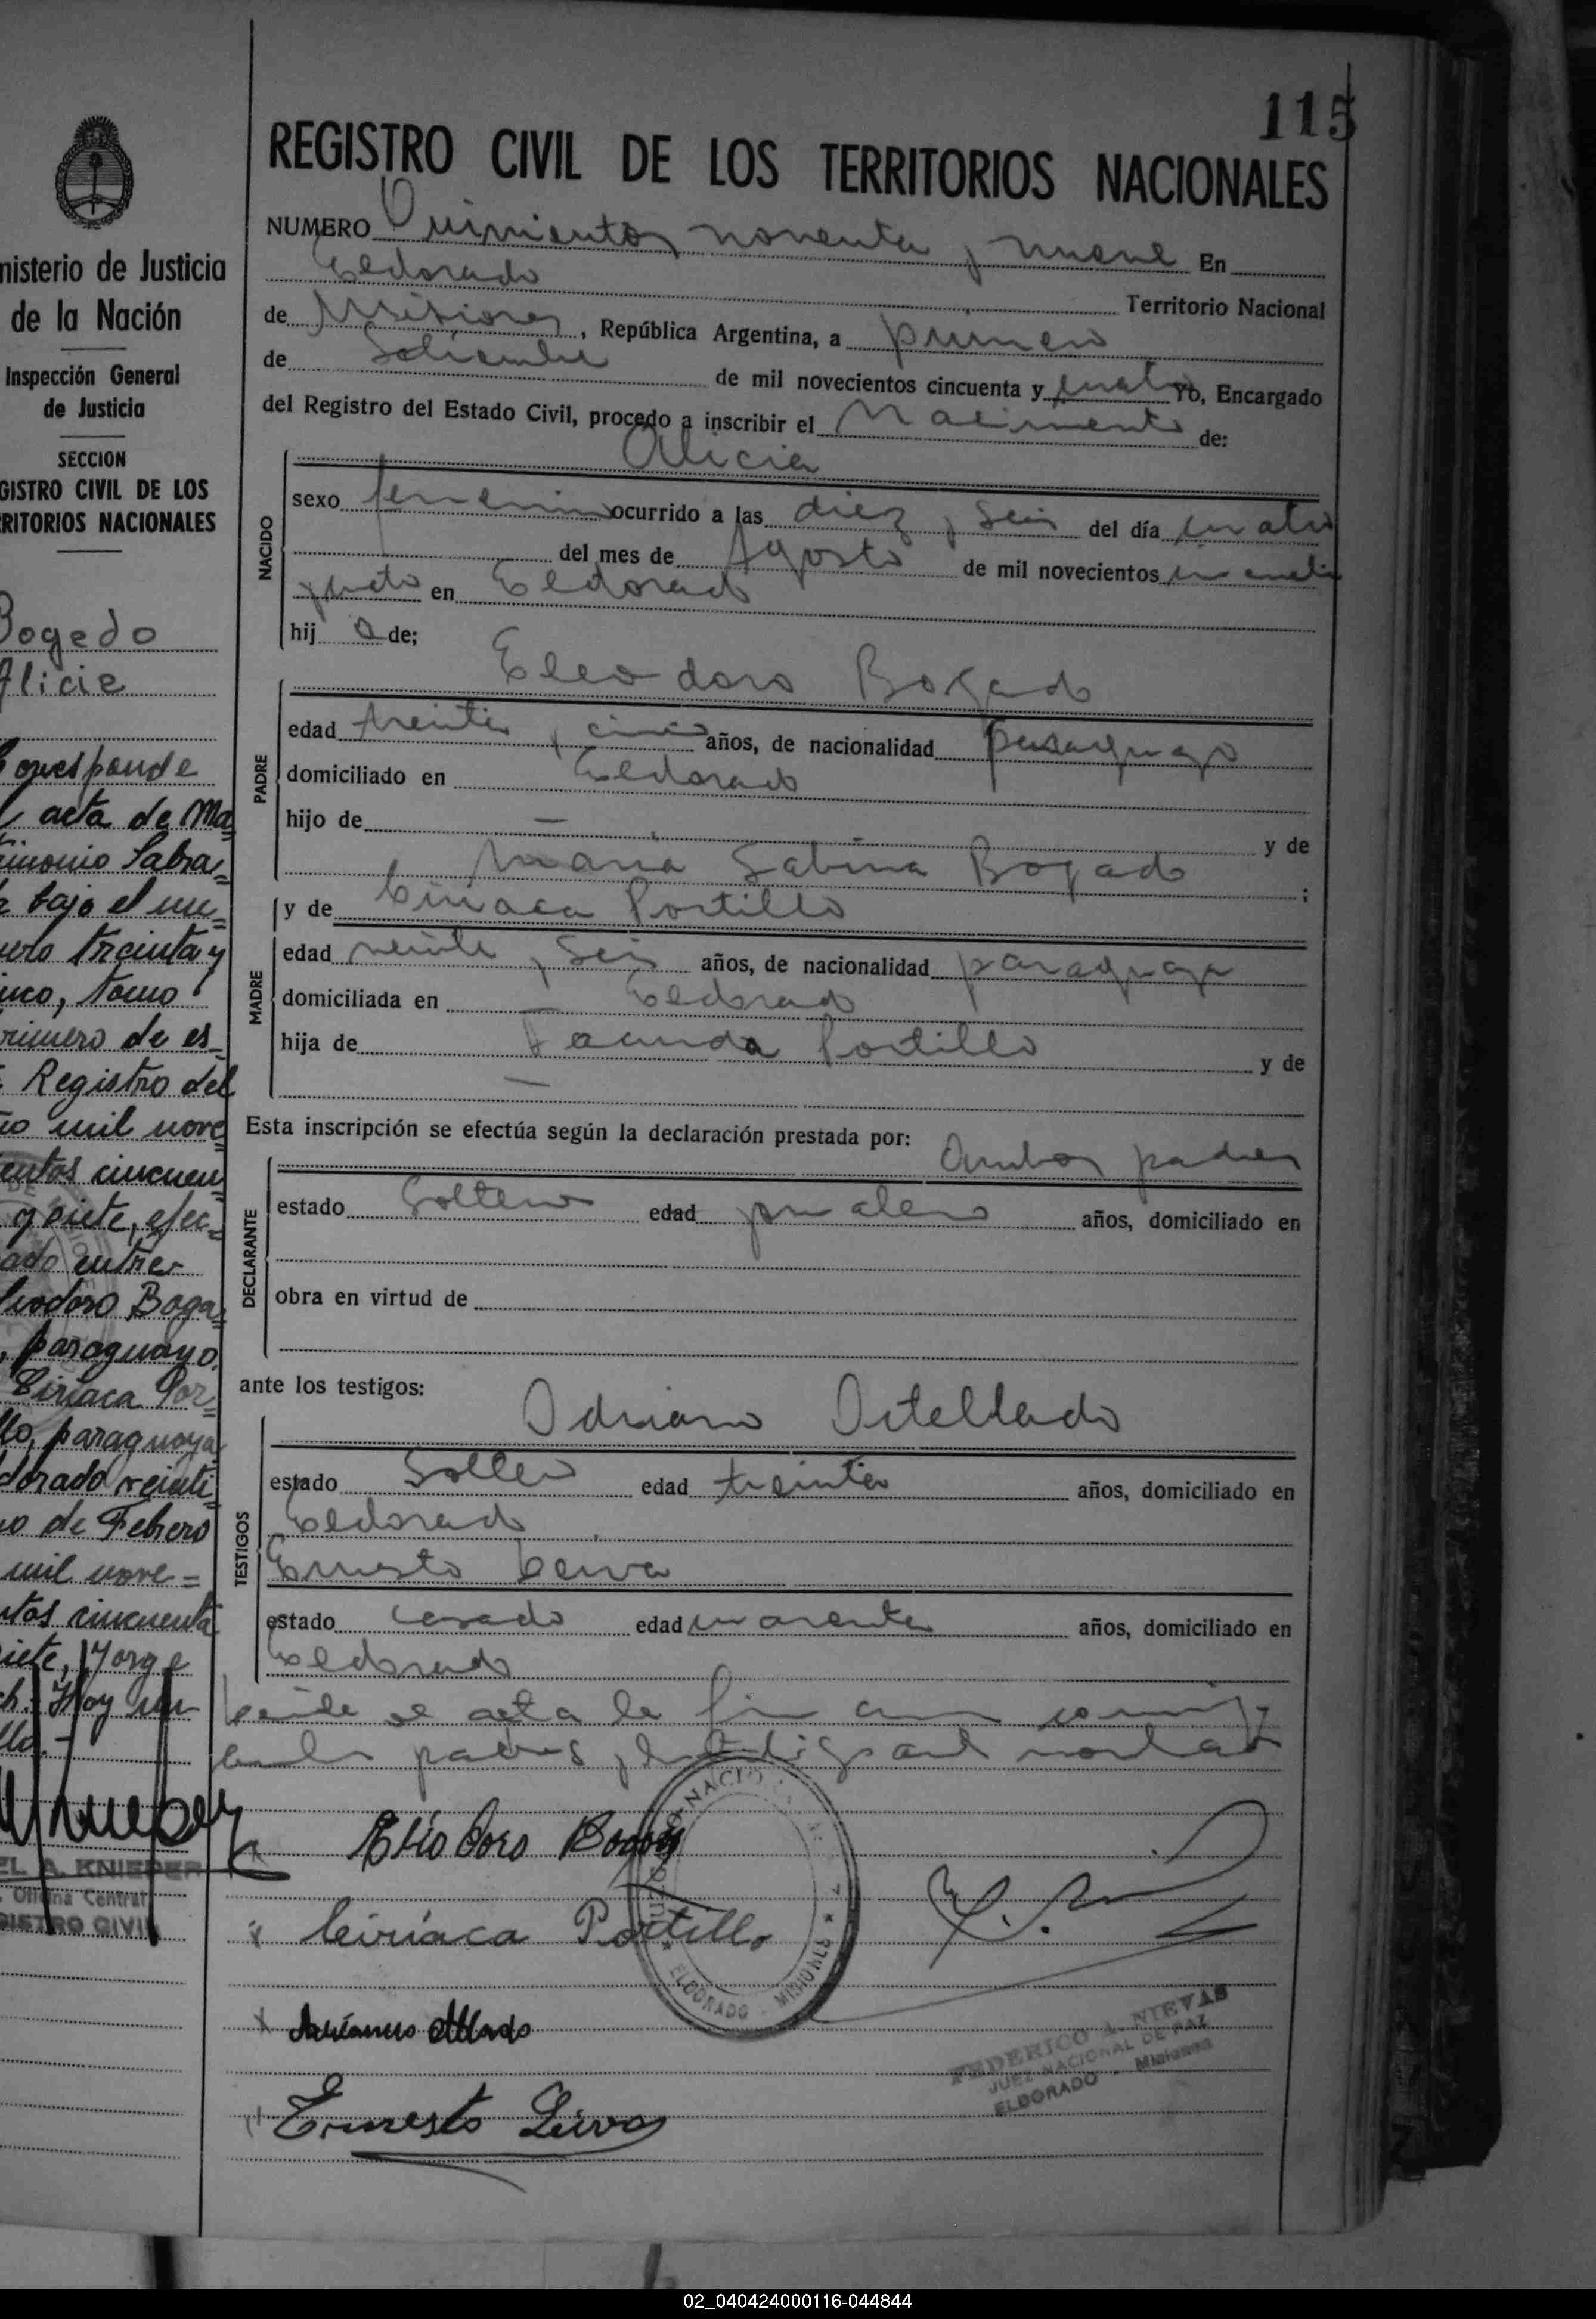 115
REGISTRO CIVIL DE LOS TERRITORIOS NACIONALES
nisterio de Justicia
de la Nación
Inspección General
de Justicia
SECCION
GISTRO CIVIL DE LOS
RITORIOS NACIONALES
Bogedo
Alicie
orresponde
acta de Ma
imonio Labra=
bajo el nu=
ero treinta y
nco, tomo
rimero de es_
Registro del
ño mil nove
entos cincuen
y siete, efec=
ado entre
liodoro Boga=
, paraguayo,
Ciriaca Por=
llo, paraguaya
dorado veinti
o de Febrero
mil nove=
ntos cincuenta
siete, Jorge
Hoy un
EL A. KNIEPER
Oficina Central
GISTRO CIVIL
NUMERO Quinientos noventa y nueve En
Eldorado Territorio Nacional
de Misiones, República Argentina, a primero
de Setiembre de mil novecientos cincuenta y cuatro Yo, Encargado
del Registro del Estado Civil, procedo a inscribir el Nacimiento de:
NACIDO
Alicia
sexo femenino ocurrido a las diez y seis del día cuatro
del mes de Agosto de mil novecientos
en Eldorado
hij a de;
PADRE
Eleodoro Bogado
edad treinta y cinco años, de nacionalidad paraguayo
domiciliado en Eldorado
hijo de — y de
Maria Sabina Bogado ;
y de Ciriaca Portillo
MADRE
edad veinte y seis años, de nacionalidad paraguaya
domiciliada en Eldorado
hija de Facunda Portillo y de
—
Esta inscripción se efectúa según la declaración prestada por: Ambos padres
DECLARANTE
estado Solteros edad años, domiciliado en
obra en virtud de
ante los testigos:
TESTIGOS
Adriano Ortellado
estado Soltero edad treinta años, domiciliado en
Eldorado
Ernesto Leiva
estado casado edad cuarenta años, domiciliado en
Eldorado
Leida el acta la
padres
Eliodoro Bogado
Ciriaca Portillo
Ernesto Leiva
NACIO
ELDORADO - MISIONES
FEDERICO A. NIEVAS
JUEZ NACIONAL DE PAZ
ELDORADO - Misiones
02_040424000116-044844